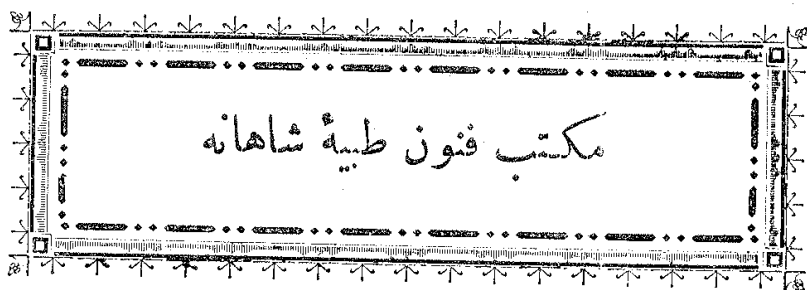 مكتب فنون طبیهٔ شاهانه